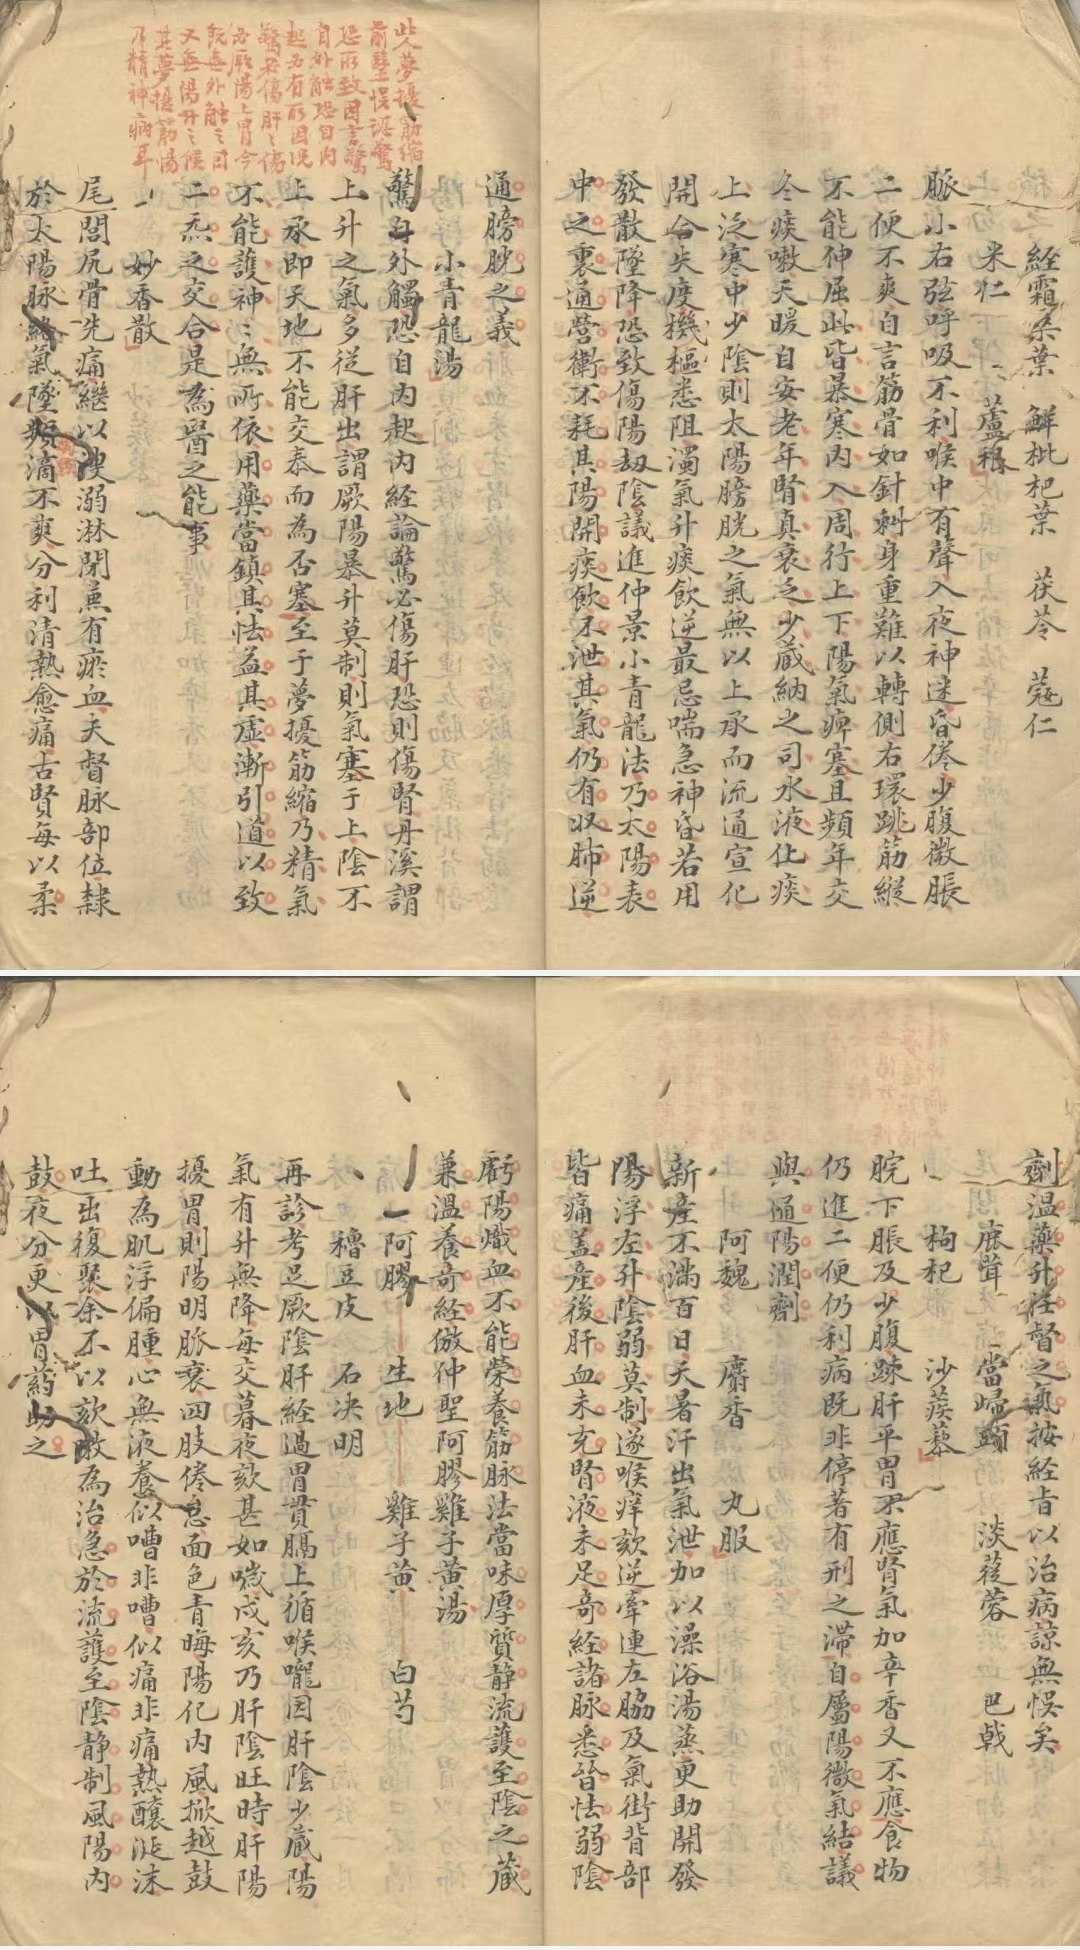 經霜桑葉　鮮枇杷葉　茯苓　蔻仁
米仁　蘆根
脈小右弦呼吸不利喉中有聲入夜神迷昏倦少腹微脹
二便不爽自言筋骨如針刺身重難以轉側右環跳筋縱
不能伸屈此皆暴寒內入周行上下陽氣痺塞且頻年交
冬痰嗽天暖自安老年腎真衰乏少藏納之司水液化痰
上泛寒中少陰則太陽膀胱之氣無以上承而流通宣化
開合失度機樞悉阻濁氣升痰飲逆最忌喘急神昏若用
發散墜降恐致傷陽劫陰議進仲景小青龍法乃太陽表
中之裏通營衛不耗其陽開痰飲不泄其氣仍有収肺逆
通膀胱之義
小青龍湯
驚自外觸恐自內起內經論驚必傷肝恐則傷腎丹溪謂
上升之氣多從肝出謂厥陽暴升莫制則氣塞于上陰不
上承即天地不能交泰而為否塞至于夢擾筋縮乃精氣
不能護神神無所依用藥當鎮其怯益其虛漸引道以致
二炁之交合是為醫之能事
妙香散
尾閭尻骨先痛繼以溲溺淋閉兼有瘀血夫督脈部位隸
於太陽脈絡氣墜頻滴不爽分利清熱愈痛古賢每以柔
此人夢擾筋縮
前醫悮認驚
恐所致因言驚
自外触恐自內
起必有所因況
驚來傷肝肝傷
必厥陽上冒今
既無外觸之因
又無陽升之候
其夢擾筋惕
乃精神病耳
劑温藥升任督之氣按經旨以治病諒無悞矣
鹿茸　當歸頭　淡蓯蓉　巴戟
枸杞　沙蒺藜
脘下脹及少腹踈肝平胃不應腎氣加辛香又不應食物
仍進二便仍利病既非停著有形之滯自屬陽微氣結議
與通陽潤劑
阿魏　麝香　丸服
新產不滿百日天暑汗出氣泄加以澡浴湯蒸更助開發
陽浮左升陰弱莫制遂喉痒欬逆牽連左脇及氣街背部
皆痛盖產後肝血未充腎液未足奇經諸脈悉皆怯弱陰
虧陽熾血不能榮養筋脈法當味厚質静流護至陰之藏
兼溫養奇經倣仲聖阿膠雞子黃湯
阿膠　生地　雞子黃　白芍
穭豆皮　石决明
再診考足厥陰肝經過胃貫膈上循喉嚨因肝陰少藏陽
氣有升無降每交暮夜欬甚如嗆戌亥乃肝陰旺時肝陽
擾胃則陽明脈衰四肢倦怠面色青晦陽化內風掀越鼓
動為肌浮偏腫心無液養似嘈非嘈似痛非痛熱釀涎沫
吐出復聚余不以欬嗽為治急於流護至陰静制風陽內
鼓夜分更以胃葯助之